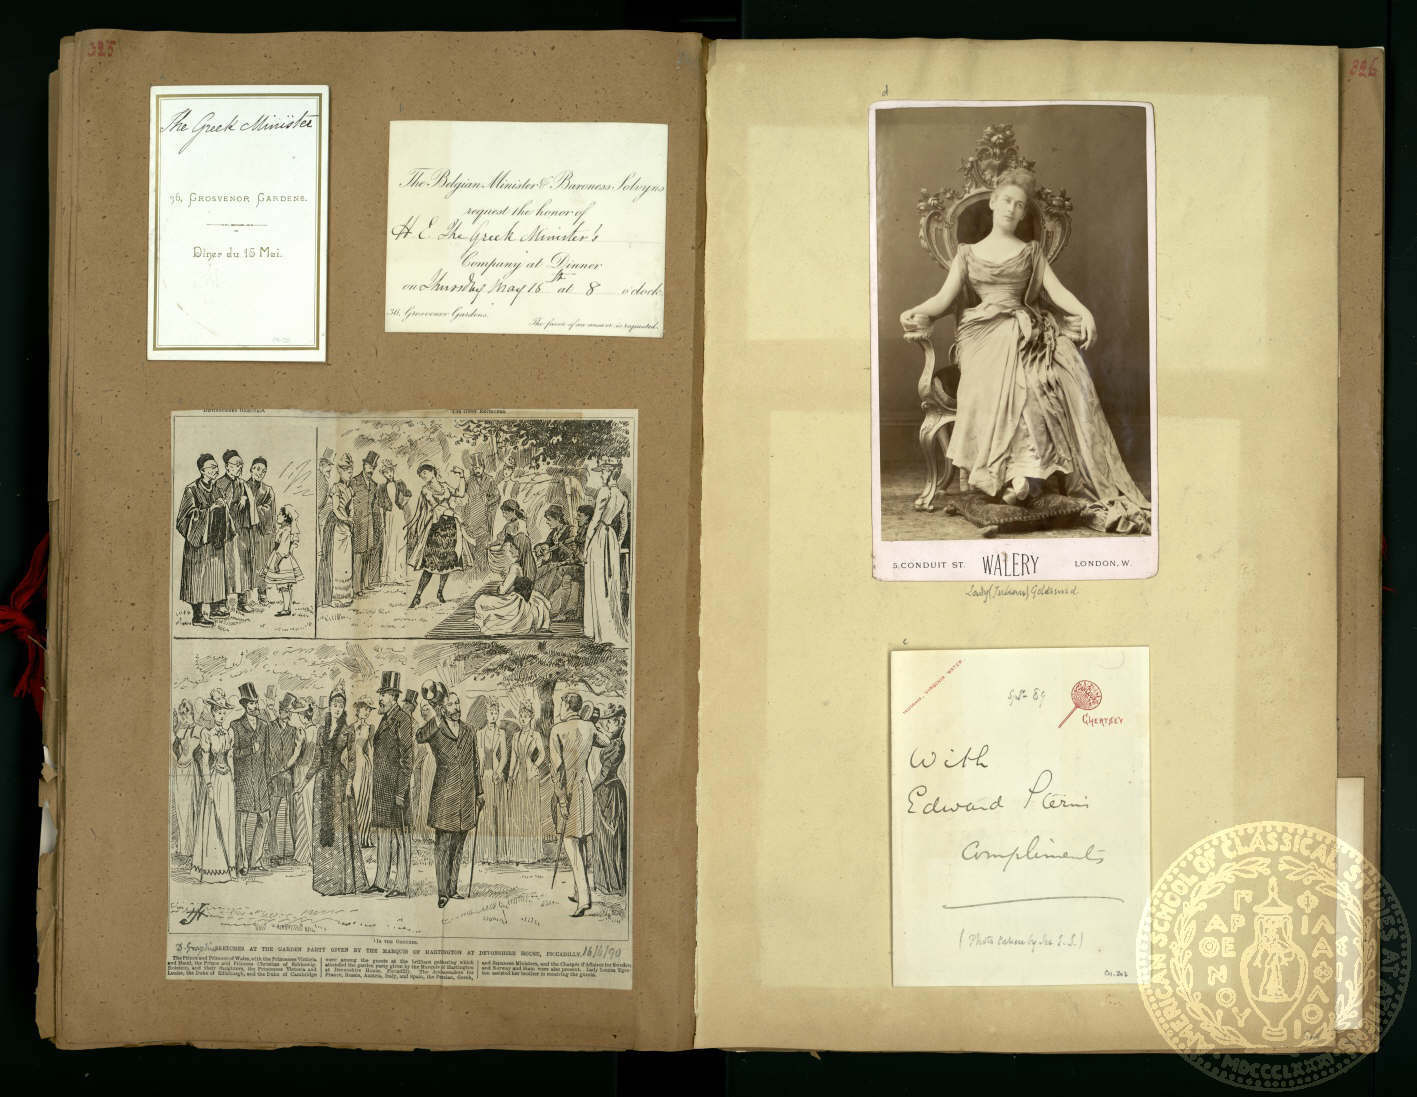 325
The Greek Minister
36, GROSVENOR GARDENS.
Dîner du 15 Mai.
b
The Belgian Minister & Baroness Solvyns
request the honor of
H. E. The Greek Minister's
Company at Dinner
on Thursday May 15th at 8 o'clock.
36, Grosvenor Gardens.
The favor of an answer is requested.
IN THE GROUNDS
D. Graphic SKETCHES AT THE GARDEN PARTY GIVEN BY THE MARQUIS OF HARTINGTON AT DEVONSHIRE HOUSE, PICCADILLY. 16/6/90
The Prince and Princess of Wales, with the Princesses Victoria
and Maud, the Prince and Princess Christian of Schleswig-
Holstein, and their daughters, the Princesses Victoria and
Louise, the Duke of Edinburgh, and the Duke of Cambridge
were among the guests at the brilliant gathering which
attended the garden party given by the Marquis of Hartington
at Devonshire House, Piccadilly. The Ambassadors for
France, Russia, Austria, Italy, and Spain, the Persian, Greek,
and Japanese Ministers, and the Chargés d'Affaires for Sweden
and Norway and Siam were also present. Lady Louisa Eger-
ton assisted her brother in receiving the guests.
326
d
5, CONDUIT ST. WALERY LONDON, W.
Lady (Julian) Goldsmid
c
VIRGINIA WATER
CHERTSEY
With
Edward Stern's
Compliments
AMERICAN SCHOOL OF CLASSICAL STUDIES AT ATHENS
MDCCCLXXXI
ΠΑΡΘΕΝΟΥ ΦΙΛΑΣ ΦΙΛΟΙ